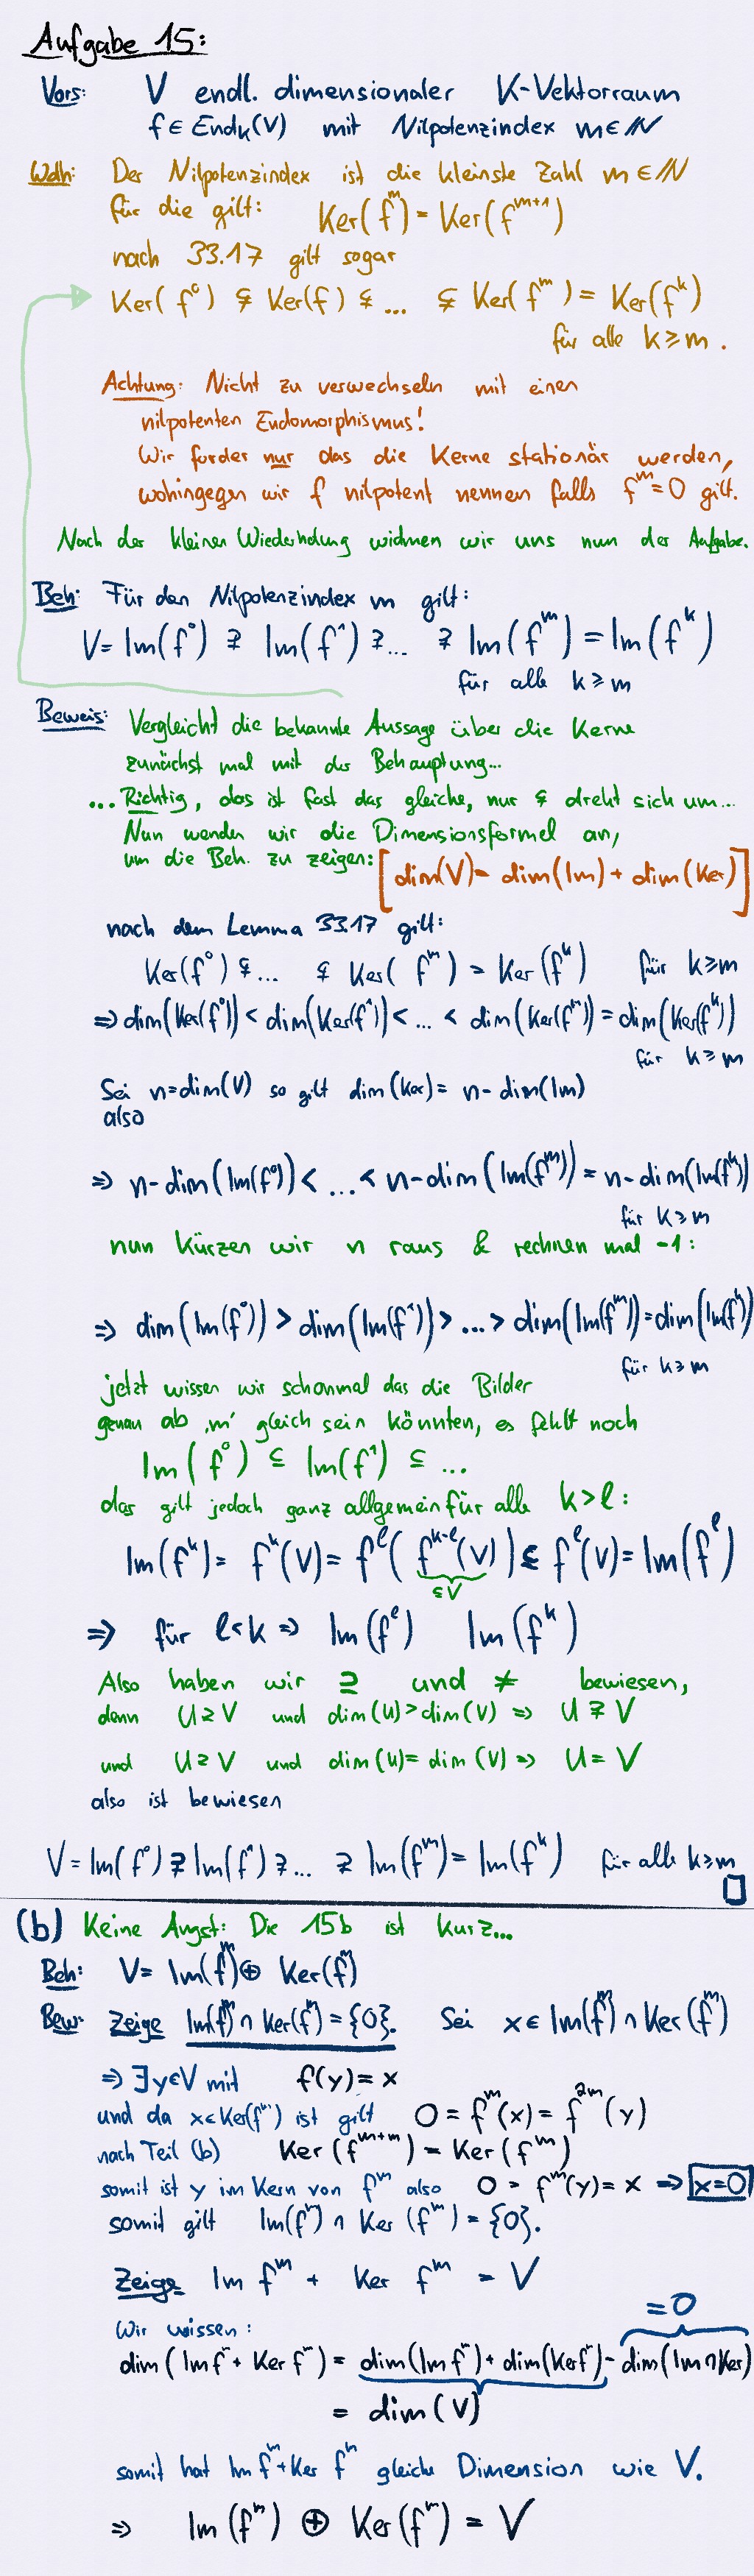 Aufgabe 15:
Vors: V endl. dimensionaler K-Vektorraum
f ∈ End_K(V) mit Nilpotenzindex m ∈ ℕ
Wdh: Der Nilpotenzindex ist die kleinste Zahl m ∈ ℕ
für die gilt: Ker(f^m) = Ker(f^{m+1})
nach 33.17 gilt sogar
Ker(f^0) ⊊ Ker(f) ⊊ ... ⊊ Ker(f^m) = Ker(f^k)
für alle k ≥ m.
Achtung: Nicht zu verwechseln mit einen
nilpotenten Endomorphismus!
Wir forder nur das die Kerne stationär werden,
wohingegen wir f nilpotent nennen falls f^m = 0 gilt.
Nach der kleinen Wiederholung widmen wir uns nun der Aufgabe.
Beh: Für den Nilpotenzindex m gilt:
V = Im(f^0) ⊋ Im(f^1) ⊋ ... ⊋ Im(f^m) = Im(f^k)
für alle k ≥ m
Beweis: Vergleicht die bekannte Aussage über die Kerne
zunächst mal mit der Behauptung...
... Richtig, das ist fast das gleiche, nur ⊊ dreht sich um...
Nun wenden wir die Dimensionsformel an,
um die Beh. zu zeigen: [dim(V) = dim(Im) + dim(Ker)]
nach dem Lemma 33.17 gilt:
Ker(f^0) ⊊ ... ⊊ Ker(f^m) = Ker(f^k) für k ≥ m
⇒ dim(Ker(f^0)) < dim(Ker(f^1)) < ... < dim(Ker(f^m)) = dim(Ker(f^k))
für k ≥ m
Sei n = dim(V) so gilt dim(Ker) = n - dim(Im)
also
⇒ n - dim(Im(f^0)) < ... < n - dim(Im(f^m)) = n - dim(Im(f^k))
für k ≥ m
nun kürzen wir n raus & rechnen mal -1:
⇒ dim(Im(f^0)) > dim(Im(f^1)) > ... > dim(Im(f^m)) = dim(Im(f^k))
für k ≥ m
jetzt wissen wir schonmal das die Bilder
genau ab 'm' gleich sein könnten, es fehlt noch
Im(f^0) ⊆ Im(f^1) ⊆ ...
das gilt jedoch ganz allgemein für alle k > l:
Im(f^k) = f^k(V) = f^l(f^{k-l}(V)) ⊆ f^l(V) = Im(f^l)
⊆V
⇒ für l < k ⇒ Im(f^l) Im(f^k)
Also haben wir ⊇ und ≠ bewiesen,
denn U ⊇ V und dim(U) > dim(V) ⇒ U ⊋ V
und U ⊇ V und dim(U) = dim(V) ⇒ U = V
also ist bewiesen
V = Im(f^0) ⊋ Im(f^1) ⊋ ... ⊋ Im(f^m) = Im(f^k) für alle k ≥ m
□
(b) Keine Angst: Die 15b ist kurz...
Beh: V = Im(f^m) ⊕ Ker(f^m)
Bew: Zeige Im(f^m) ∩ Ker(f^m) = {0}. Sei x ∈ Im(f^m) ∩ Ker(f^m)
⇒ ∃ y ∈ V mit f(y) = x
und da x ∈ Ker(f^m) ist gilt 0 = f^m(x) = f^{2m}(y)
nach Teil (b) Ker(f^{m+m}) = Ker(f^m)
somit ist y im Kern von f^m also 0 = f^m(y) = x ⇒ x=0
somit gilt Im(f^m) ∩ Ker(f^m) = {0}.
Zeige Im f^m + Ker f^m = V
Wir wissen: = 0
dim(Im f^m + Ker f^m) = dim(Im f^m) + dim(Ker f^m) - dim(Im ∩ Ker)
= dim(V)
somit hat Im f^m + Ker f^m gleiche Dimension wie V.
⇒ Im(f^m) ⊕ Ker(f^m) = V